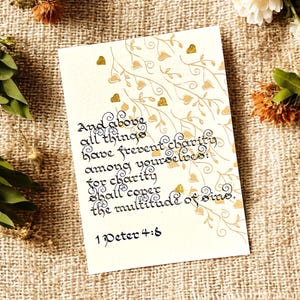 And above
all things
have frevent charity
among yourselves:
for charity
shall cover
the multitude of sins.
1 Peter 4:8